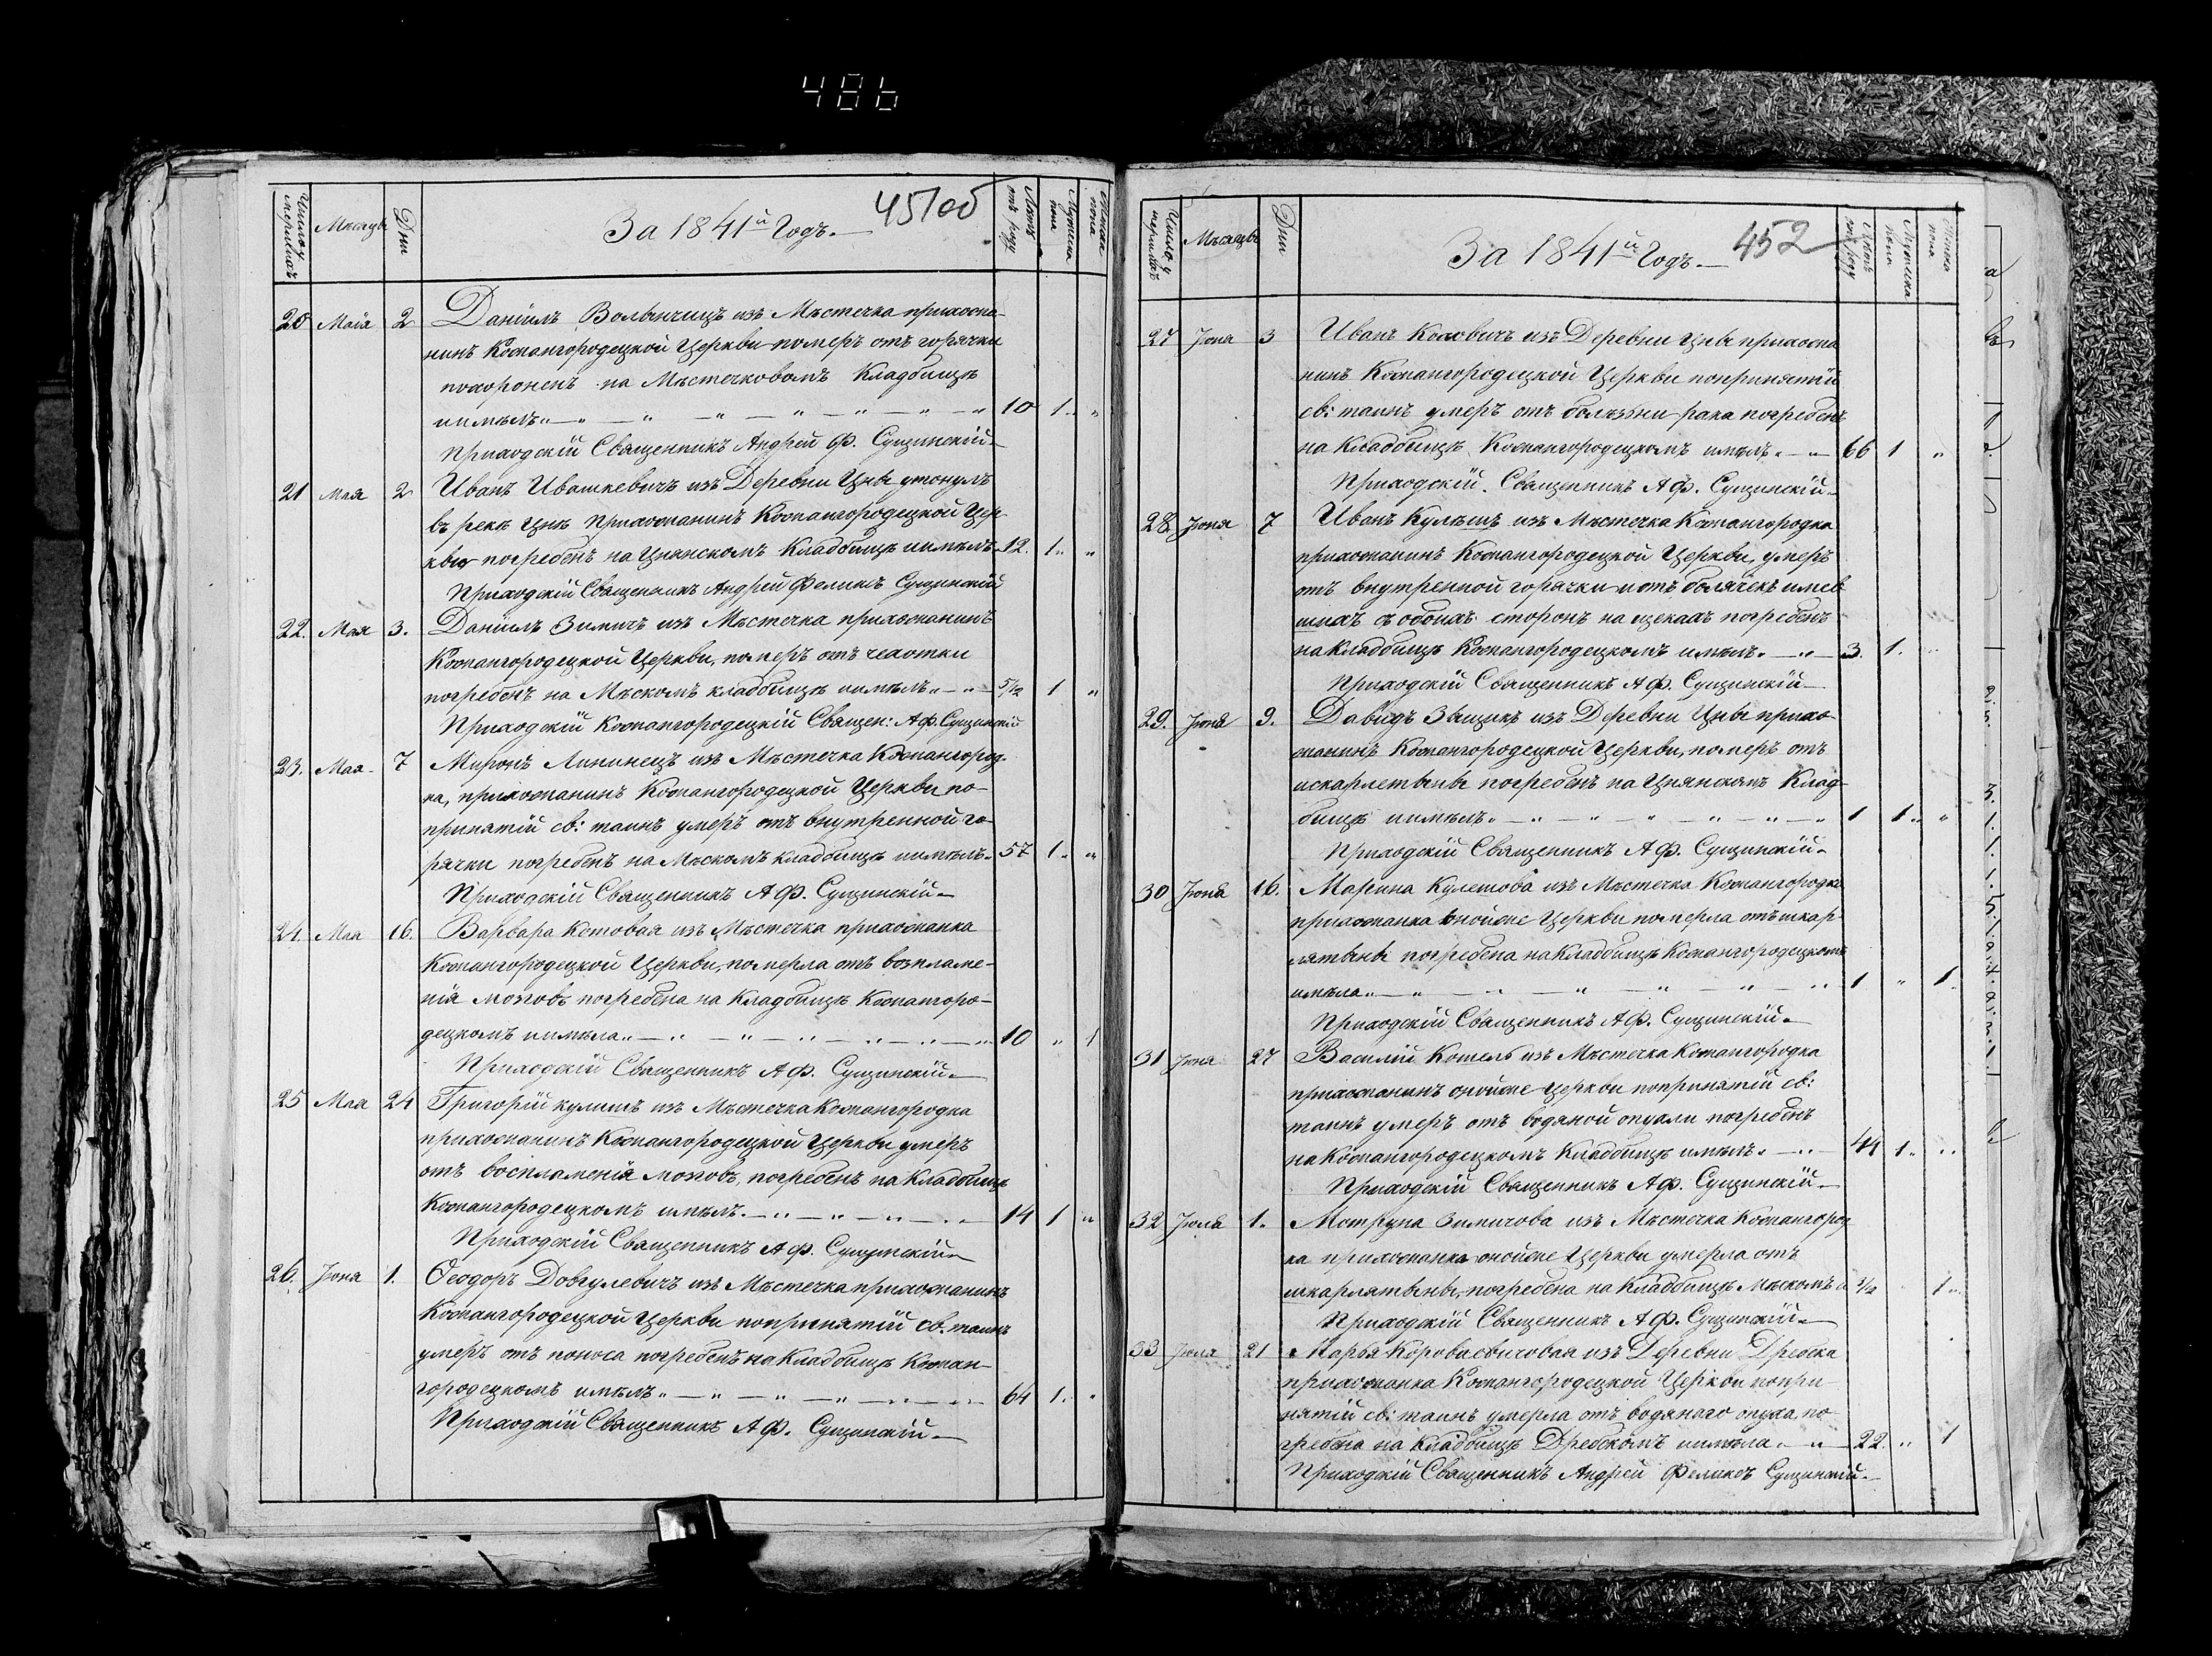 486
Числоу мершихъ
Мѣсяцъ
Дни
За 1841й Годъ.—
451об
Лѣтъ отъ роду
Мужеска пола
Женска пола
20 Мая 2 Даніилъ Волынчицъ изъ Мѣстечка прихожа-
нинъ Кожангородецкой Церкви померъ отъ горячки
похороненъ на Мѣстечковомъ Кладбищѣ
иимѣлъ 10 1 "
Приходскій Священникъ Андрей Ф. Сущинскій
21 Мая 2 Иванъ Ивашкевичъ изъ Деревни Цны утонулъ
въ рекѣ Цнѣ прихожанинъ Кожангородецкой Цер-
кви погребенъ на Цнянскомъ Кладбищѣ иимѣлъ 12. 1 "
Приходскій Священникъ Андрей Феликсъ Сущинскій
22. Мая 3. Даніилъ Зимичъ изъ Мѣстечка прихожанинъ
Кожангородецкой Церкви, померъ отъ чехотки
погребенъ на Мѣскомъ кладбищѣ иимѣлъ 5/12 1 "
Приходскій Кожангородецкій Священ: А Ф. Сущинскій
23. Мая 7 Миронъ Липинецъ изъ Мѣстечка Кожангород-
ка, прихожанинъ Кожангородецкой Церкви по-
принятій св: таинъ умеръ отъ внутренной го-
рячки погребенъ на Мѣскомъ кладбищѣ иимѣлъ 57 1 "
Приходскій Священникъ А Ф. Сущинскій
24. Мая 16. Варвара Котовая изъ Мѣстечка прихожанка
Кожангородецкой Церкви, померла отъ возпламе-
нія мозговъ погребена на Кладбищѣ Кожангоро-
децкомъ иимѣла 10 " 1
Приходскій Священникъ А Ф. Сущинскій
25 Мая 24 Григорій кулишъ изъ Мѣстечка Кожангородка
прихожанинъ Кожангородецкой Церкви умеръ
отъ воспламенія мозговъ, погребенъ на Кладбищѣ
Кожангородецкомъ имѣлъ 14 1 "
Приходскій Священникъ А Ф. Сущинскій
26. Іюня 1. Феодоръ Довгулевичъ изъ Мѣстечка прихожанинъ
Кожангородецкой Церкви попринятій св. таинъ
умеръ отъ поноса погребенъ на Кладбищѣ Кожан-
городецкомъ имѣлъ 64 1. "
Приходскій Священникъ А Ф. Сущинскій
Число умершихъ
Мѣсяцъ
Дни
За 1841й Годъ.—
452
Лѣтъ отъ роду
Мужеска пола
Женска пола
27 Іюня 3 Иванъ Коховичъ изъ Деревни Цны прихожа
нинъ Кожангородецкой Церкви попринятій
св: таинъ умеръ отъ болѣзни рака погребенъ
на Кладбищѣ Кожангородецкомъ имѣлъ 66 1 "
Приходскій Священникъ А Ф. Сущинскій
28. Іюня 7 Иванъ Кулѣшъ изъ Мѣстечка Кожангородка
прихожанинъ Кожангородецкой Церкви, умеръ
отъ внутренной горячки иотъ болячекъ имев
шихъ съ обоихъ сторонъ на щекахъ погребенъ
на кладбищѣ Кожангородецкомъ имѣлъ 3. 1.
Приходскій Священникъ А Ф. Сущинскій
29. Іюня 9. Давидъ Зыщикъ изъ Деревни Цны прихо-
жанинъ Кожангородецкой Церкви, померъ отъ
искарлетыны погребенъ на Цнянскомъ Клад-
бищѣ иимѣлъ 1 1 "
Приходскій Священникъ А Ф. Сущинскій
30 Іюня 16. Марина Кулешова изъ Мѣстечка Кожангородка
прихожанка онойже Церкви померла отъ шкар-
лятыны погребена на Кладбищѣ Кожангородецкомъ
имѣла 1 " 1
Приходскій Священникъ А Ф. Сущинскій
31 Іюня 27 Василій Кошель изъ Мѣстечка Кожангородка
прихожанинъ онойже Церкви попринятій св:
таинъ умеръ отъ водяной опухли погребенъ
на Кожангородецкомъ Кладбищѣ имѣлъ 44 1 "
Приходскій Священникъ А Ф. Сущинскій
32 Іюля 1. Мотруна Зимичова изъ Мѣстечка Кожангород
ка прихожанка онойже Церкви умерла отъ
шкарлятыны, погребена на Кладбищѣ Мѣскомъ и 3/12 1
Приходскій Священникъ А Ф. Сущинскій
33 Іюля 21 Марья Короваевичовая изъ Деревни Дребска
прихожанка Кожангородецкой Церкви попри
нятій св: таинъ умерла отъ водянаго опуха, по-
гребена на Кладбищѣ Дребскомъ иимѣла 22. " 1
Приходскій Священникъ Андрей Феликсъ Сущинскій